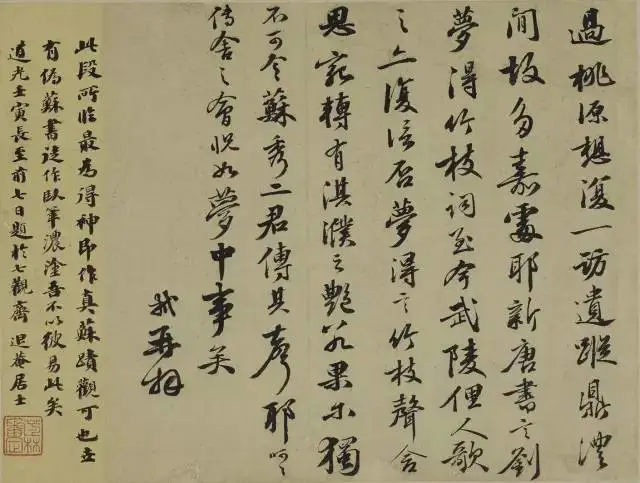 過桃源想復一訪遺蹤鼎澧
間故多嘉處耶新唐書言劉
夢得竹枝詞至今武陵俚人歌
之亦復信否夢得之竹枝聲含
思宛轉有淇濮之艷若果尔獨
不可令蘇秀二君傳其聲耶呵呵
傳舍之會怳如夢中事矣
軾再拜
此段所臨最為得神即作真蘇蹟觀可也世
有偽蘇書徒作臥筆濃塗吾不以彼易此矣
道光壬寅長至前七日題於七觀齋 退菴居士